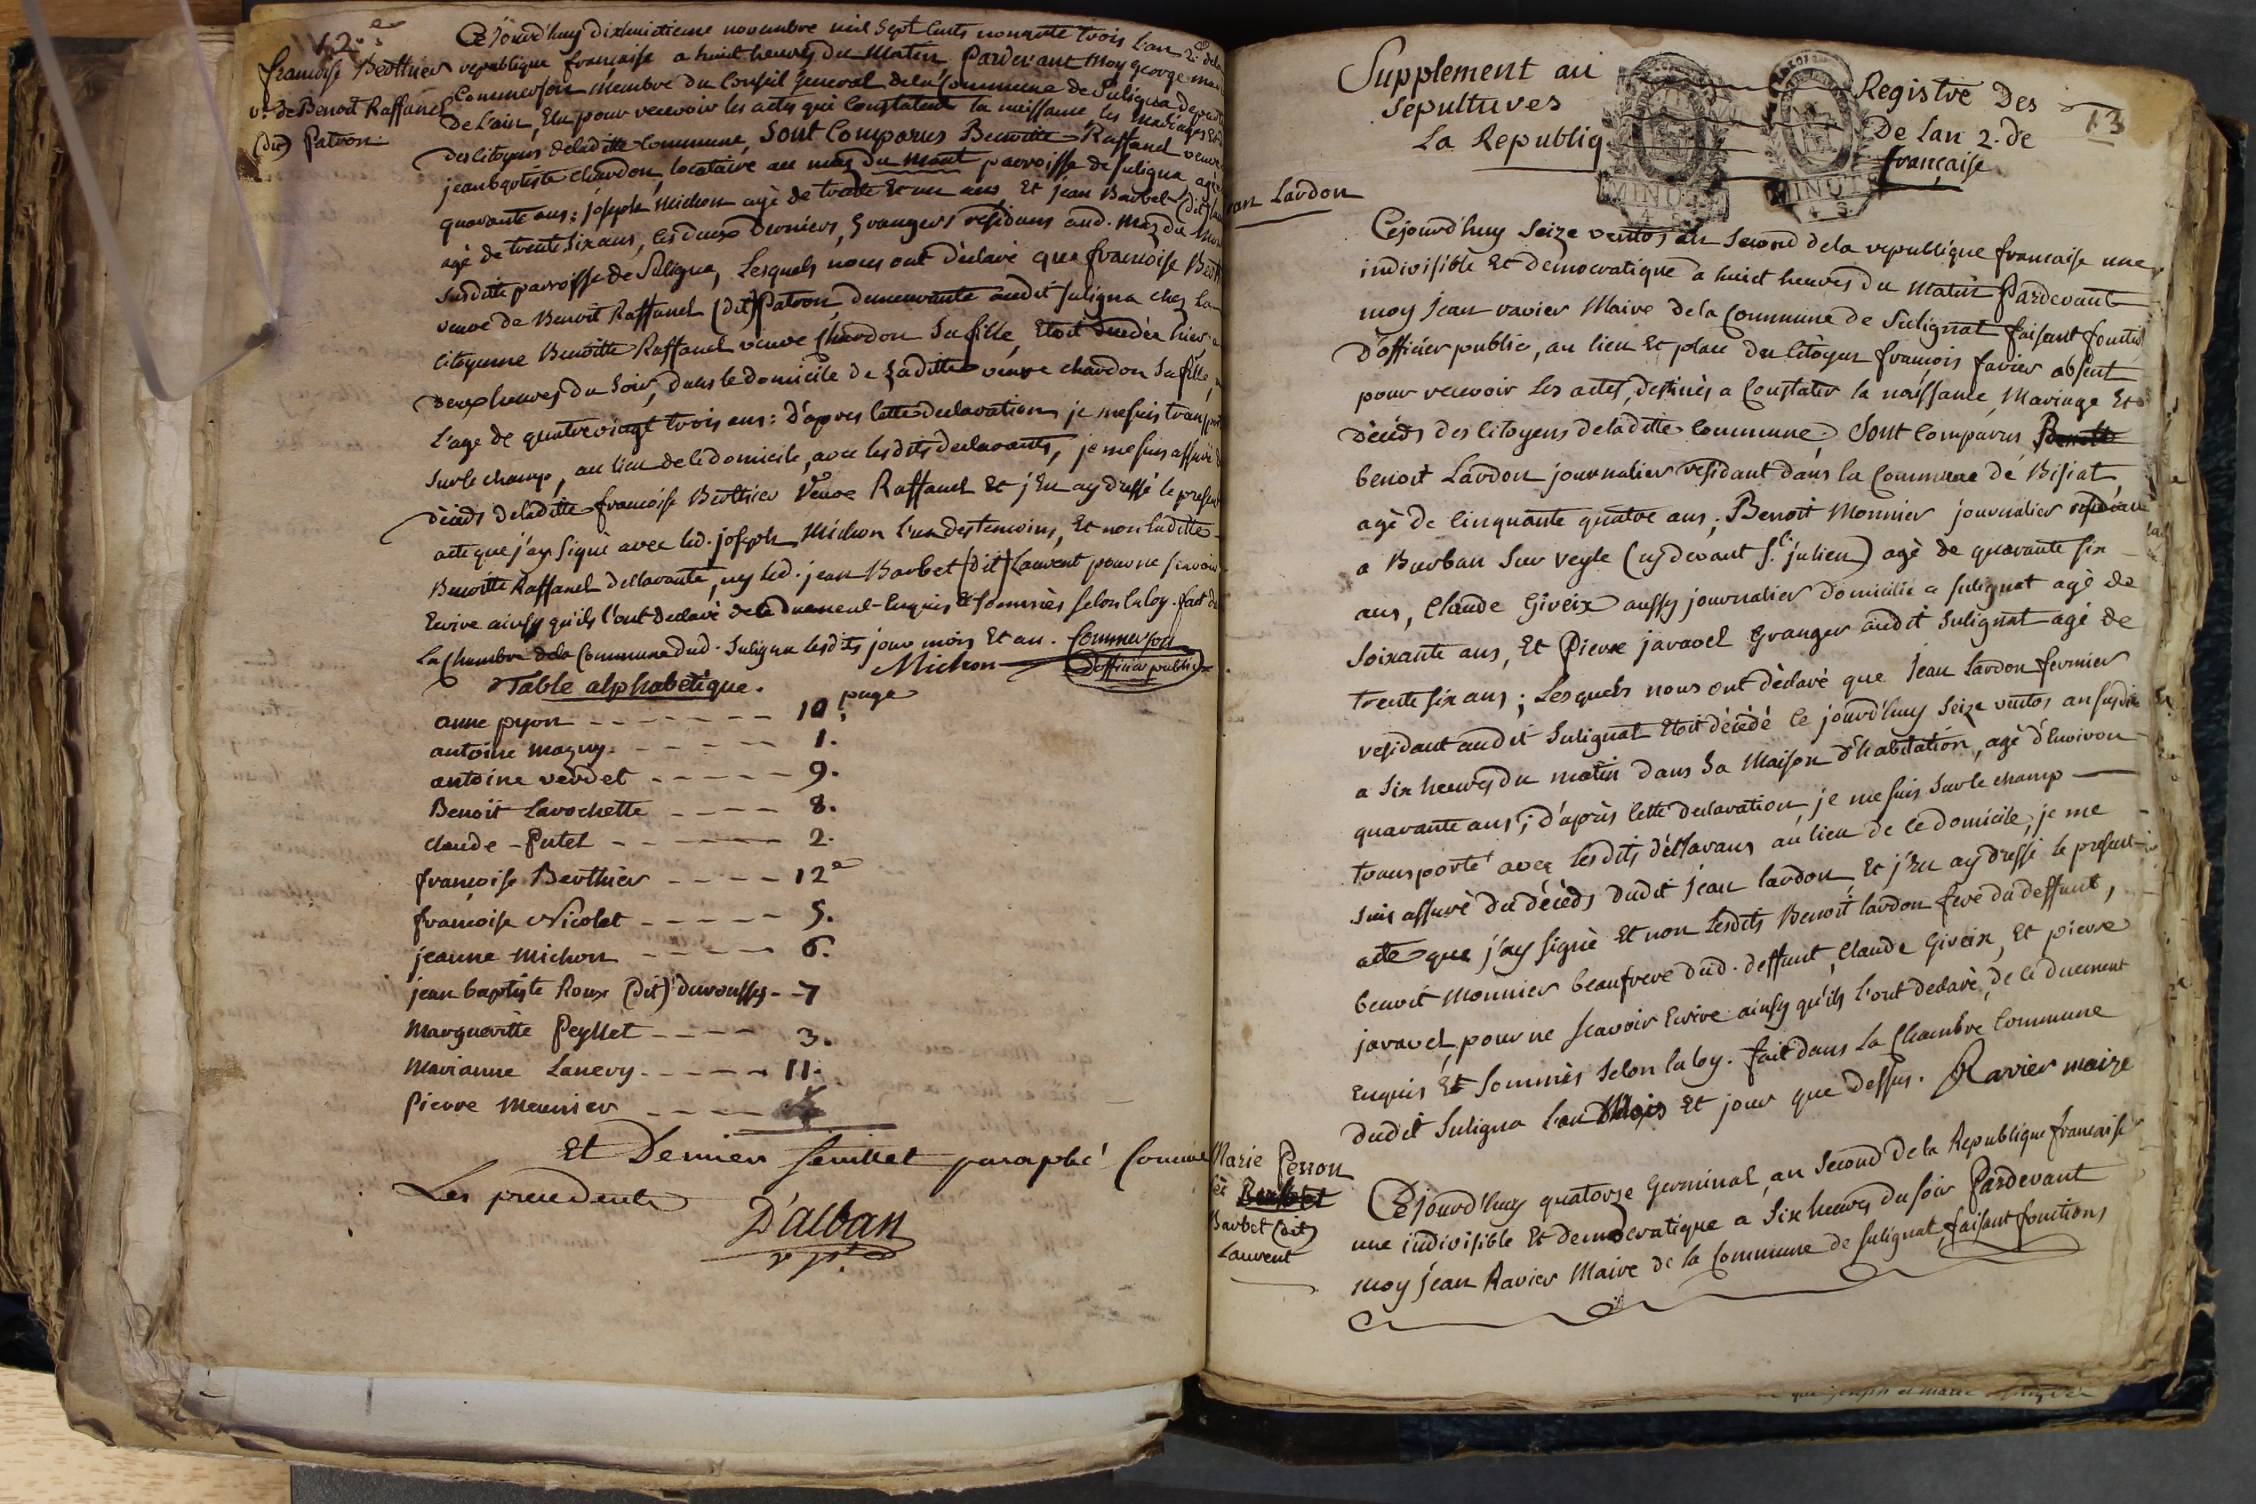 12.e
françoise Berthier
v.e de Benoit Raffanel
(dit) Patron
Cejourd'huy dixhuictieme novembre mil sept cents nonante trois l'an 2.e dela
republique française a huict heures du matin Pardevant moy george marie
Commerson membre du Conseil general dela Commune de Suligna depart
De l'ain, Elu pour recevoir les actes qui Constatent la naissance, les mariages Et d
des Citoyens deladitte Commune, Sont Comparus Benoitte Raffanel veuve
jeanbaptiste Chardon, locataire au maz du mont parroisse de suligna agée
quarante ans: joseph Michon agé de trente Et un ans, Et jean Barbet (dit) lau
agé de trente six ans, les deux derniers, Grangers residans aud. maz du mon
susditte parroisse de Suligna, Lesquels nous ont déclaré que françoise Berth
veuve de Benoit Raffanel (dit) Patron, demeurante audit suligna chez La
Citoyenne Benoitte Raffanel veuve Chardon Sa fille, Etoit decedée hier, a
deux heures du soir, dans le domicile de Laditte veuve chardon Sa fille,
L'age de quatrevingt trois ans: D'apres cette declaration je me suis transport
Sur le champ, au lieu de ce domicile, avec lesdits declarants, je me suis assuré d
décéds deladitte françoise Berthier Veuve Raffanel Et j'En ay dressé le present
acte que j'ay Signé avec led. joseph Michon l'un des temoins, Et non laditte
Benoitte Raffanel declarante, ny led. jean Barbet (dit) Laurent pour ne scavoir
Ecrire ainsy qu'ils l'ont declaré de ce duement Enquis Et sommés selon la loy. fait da
La Chambre dela Commune dud. Suligna lesdits jour mois Et an. Commerson
Michon D'officier public
Table alphabetique.
page
anne pyon - - - - - - - 10.
antoine magny. - - - - - 1.
antoine verdet - - - - - 9.
Benoit Larochette - - - - 8.
claude - Putel - - - - - 2.
françoise Berthier - - - - 12e
françoise Nicolet - - - - - 5.
jeanne Michon - - - - - 6.
jean baptiste Roux (dit) durousset - - 7
Marguerite Peyllet - - - - 3.
Marianne Lanery - - - - - 11.
Pierre Meunier - - - -
Et Dernier feuillet paraphé Comme
Les precedents
D'alban
Supplement au Registre Des
Sepultures De Lan 2. de
La Republiq française
13
MINUTE
4 S
MINUTE
4 S
Lardon
Cejourd'huy Seize ventos an Second dela republique francaise une
indivisible Et democratique a huict heures du matin Pardevant
moy jean ravier Maire dela Commune de Sulignat faisant fonctio
D'officier public, au lieu Et place du Citoyen francois favier absent
pour recevoir Les actes, destinés a Constater la naissance, Mariage Et
décéds des Citoyens deladitte Commune; Sont Comparus
benoit Lardon journalier residant dans la Commune de Bisiat,
agé de Cinquante quatre ans; Benoit Monnier journalier residant
a Burban sur veyle (cy devant S.t julien) agé de quarante six
ans, Claude Giveix aussy journalier domicilié a sulignat agé de
Soixante ans, Et Pierre javavel Granger audit Sulignat agé de
trente six ans; Lesquels nous ont déclaré que Jean Lardon fermier
residant audit Sulignat Etoit décédé Ce jourd'huy Seize ventos an susdit
a six heures du matin dans Sa Maison d'habitation, agé d'Environ
quarante ans; d'après Cette declaration je me suis Sur le champ
transporté avec Lesdits déclarans au lieu de Ce domicile, je me
suis assuré du décéds dudit jean Lardon, Et j'En ay dressé le present
acte que j'ay signé Et non Lesdits Benoit lardon frere du deffunt,
benoit Monnier beaufrere dud. deffunt, Claude Giveix, Et pierre
javavel, pour ne scavoir Ecrire ainsy qu'ils l'ont declaré, de Ce duement
Enquis Et Sommés selon la loy. fait dans La Chambre Commune
dudit Suligna L'an Mois Et jour que dessus. Ravier maire
Marie Perron
Barbet (dit)
Laurent
Cejourd'huy quatorze Germinal, an Second de la Republique francaise
une indivisible Et democratique a Six heures du soir Pardevant
moy jean Ravier Maire de la Commune de sulignat, faisant fonctions